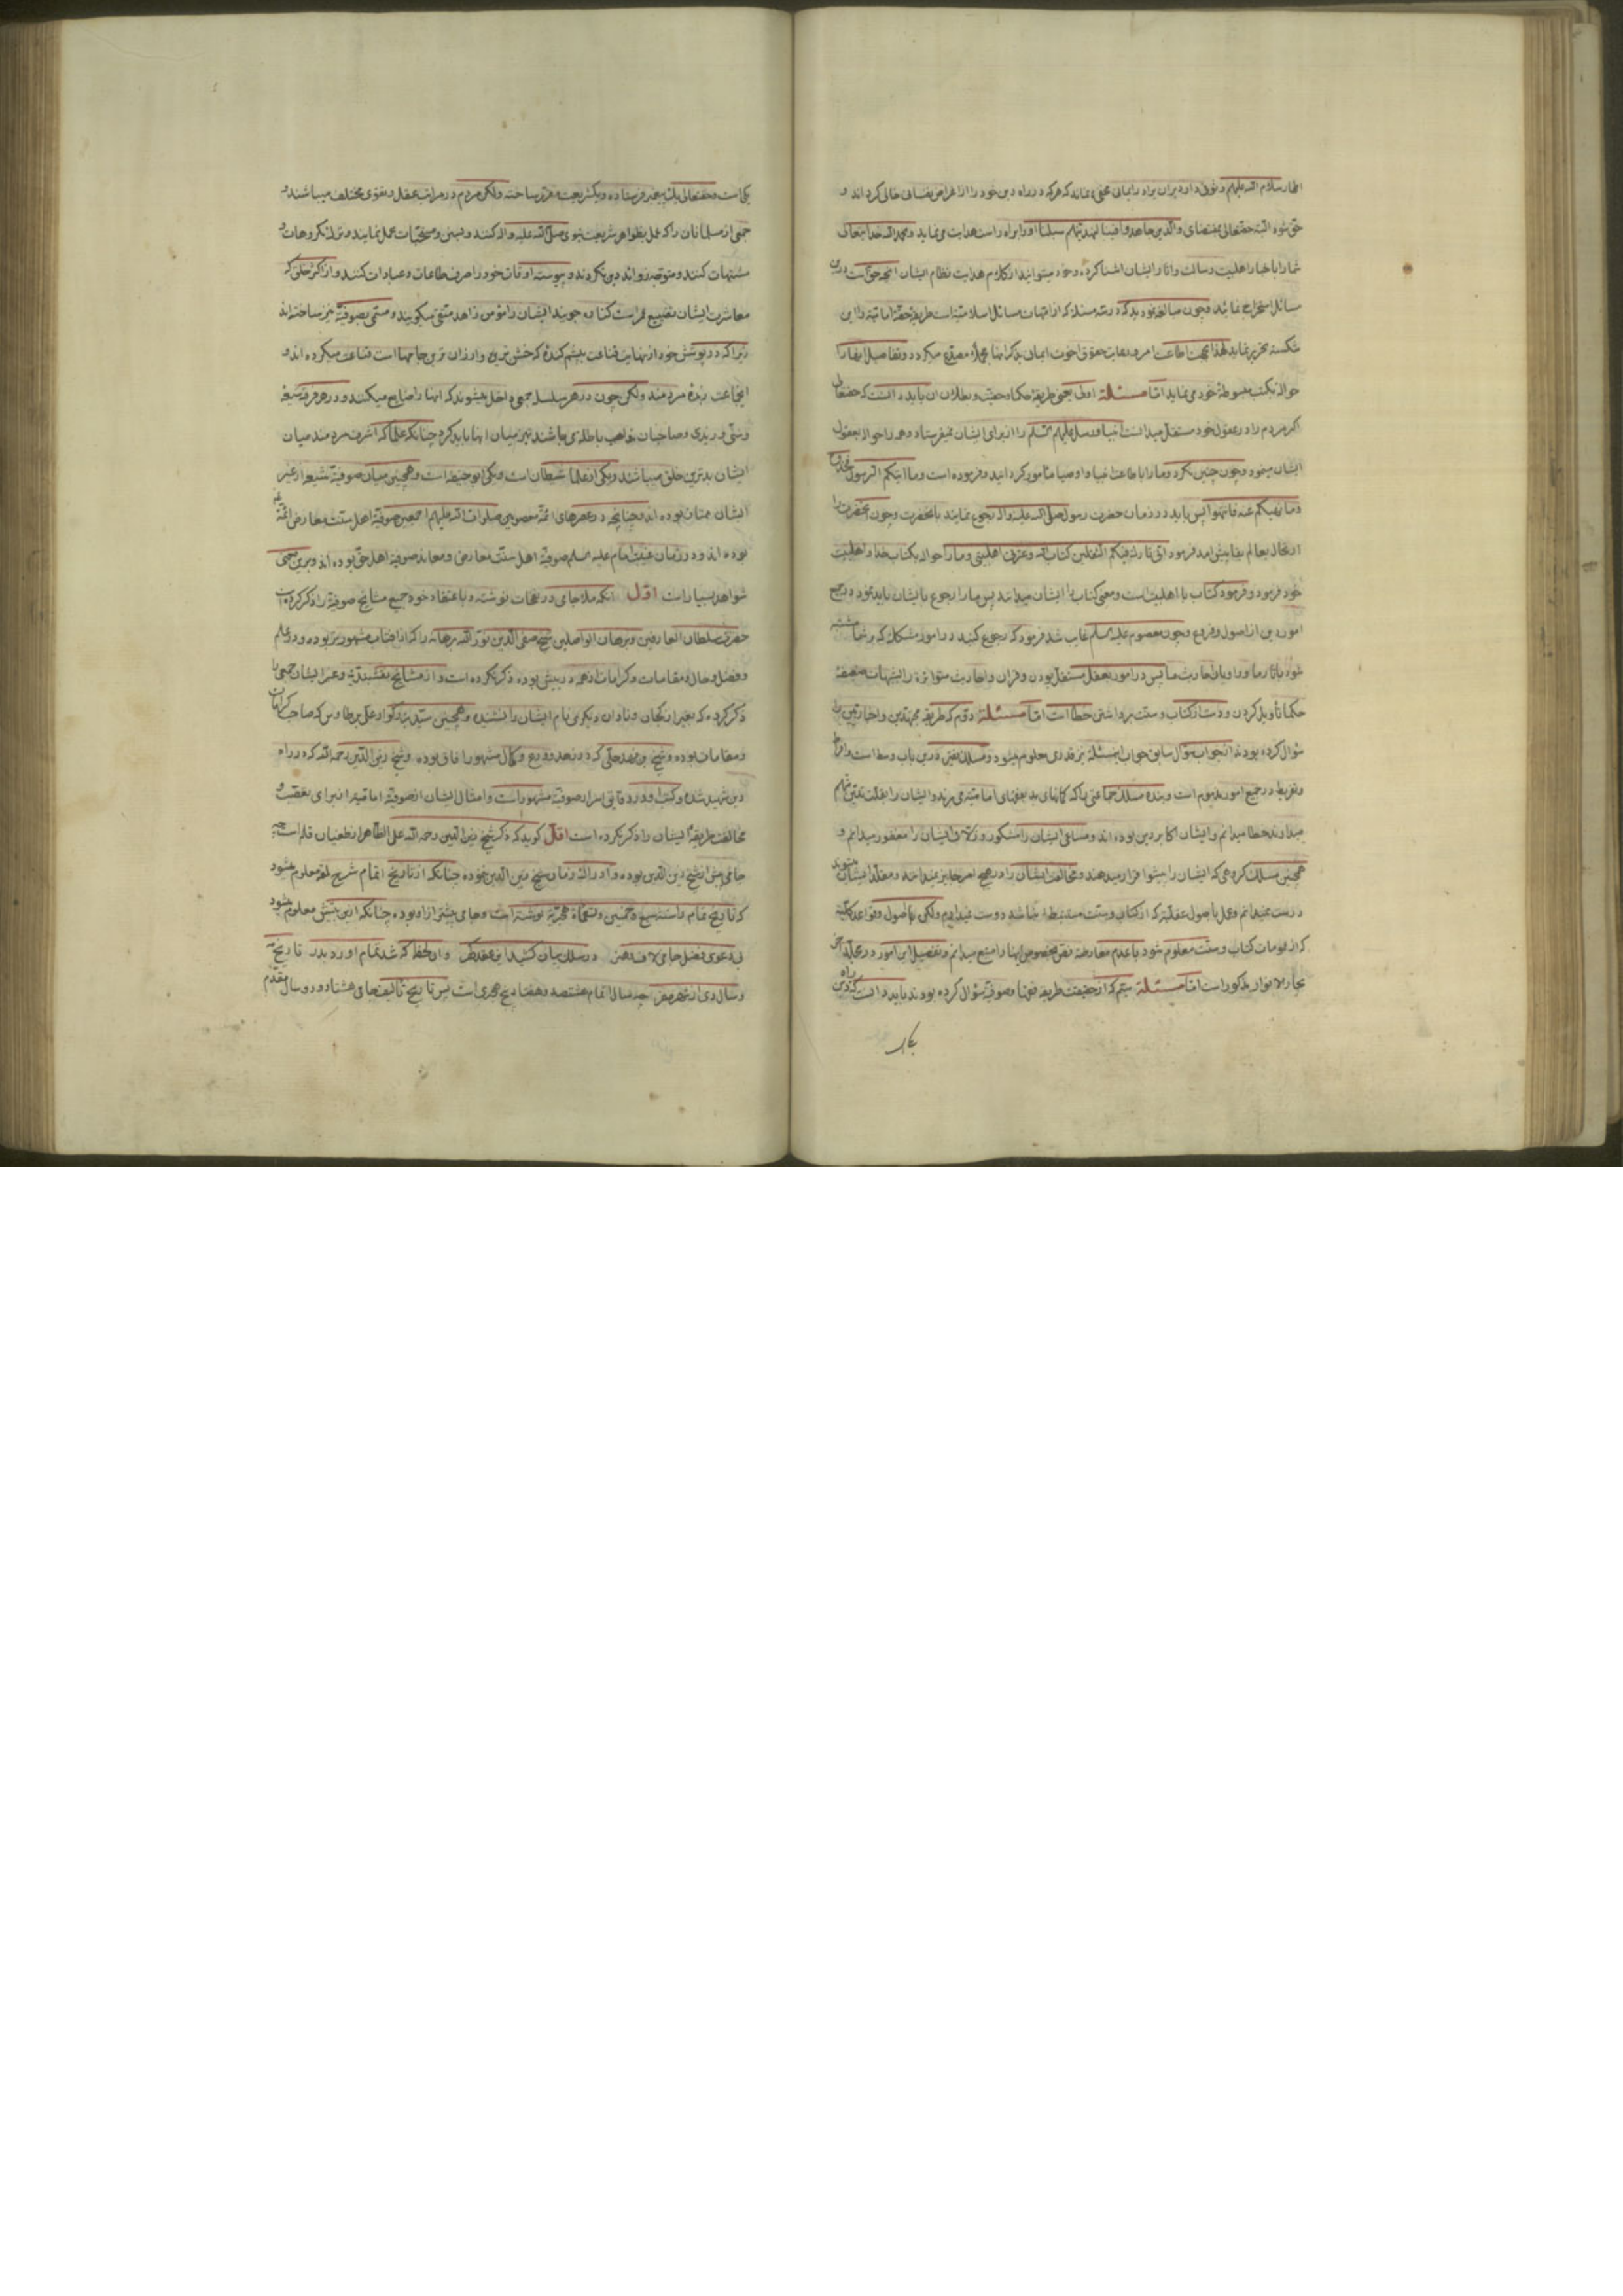 اطهار سلام الله علیهم وثوق دارد بران برادر ایمانی مخفی نماند که هرکه در راه دین خود را از اغراض نفسانی خالی گرداند و
حق شود البته حقتعالی بمقتضای والذین جاهدوا فینا لنهدینهم سبلنا او را براه راست هدایت می نماید وبحمد الله خدا بتعالی
شما را با اخبار اهلبیت رسالت واثار ایشان اشنا کرده وخود میتوانید از کلام هدایت نظام ایشان انچه حق است درین
مسائل استخراج نمائید وچون مبالغه نموده بودید که در سه مسئله که از امهات مسائل اسلامیه است طریقه حقه امامیه را این
شکسته تحریر نماید لهذا بجهت اطاعت امر ورعایت حقوق اخوت ایمان بذکر اینها مجملا مصدع میگردد وتفاصیل اینها را
حواله بکتب مبسوطه خود می نماید اما مسئله اول یعنی طریقه حکما وحقیت وبطلان ان باید دانست که حقتعالی
اگر مردم را در عقول خود مستقل میدانست انبیا ورسل علیهم السلام را از برای ایشان نمیفرستاد وهمه را حواله بعقول
ایشان مینمود وچون چنین نکرد وما را باطاعت انبیا واوصیا مامور گردانید وفرموده است وما اتیکم الرسول فخذوه
وما نهیکم عنه فانتهوا پس باید در زمان حضرت رسول صلی الله علیه واله رجوع نمایند بانحضرت وچون انحضرت را
ارتحال بعالم بقا پیش امد فرمود انی تارک فیکم الثقلین کتاب الله وعترتی اهلبیتی وما را حواله بکتاب خدا واهلبیت
خود فرمود وفرمود کتاب با اهلبیت است ومعنی کتاب را ایشان میدانند پس ما را رجوع بایشان باید نمود در جمیع
امور دین از اصول وفروع وچون معصوم علیه السلام غایب شد فرمود که رجوع کنید در امور مشکله که بر شما مشتبه
شود باثار ما وراویان احادیث ما پس در امور بعقل مستقل بودن وقران واحادیث متواتره را بشبهات ضعیفه
حکما تأویل کردن ودست از کتاب وسنت برداشتن خطا است اما مسئله دوم که طریقه مجتهدین واخباریین را
سؤال کرده بودند از جواب سؤال سابق جواب این مسئله نیز قدری معلوم میشود ومسلک فقیر درین باب وسط است وافراط
وتفریط در جمیع امور مذموم است وبنده مسلک جماعتی را که گمانهای بد بفقهای امامیه می برند وایشان را بقلت تدین متهم
میدارند خطا میدانم وایشان اکابر دین بوده اند ومساعی ایشان را مشکور وزلات ایشان را مغفور میدانم و
همچنین مسلک گروهی که ایشان را پیشوا قرار میدهند ومخالفت ایشان را در هیچ امر جایز نمیدانند ومقلد ایشان میشوند
درست نمیدانم وعمل باصول عقلیه که از کتاب وسنت مستنبط نباشد درست نمیدانم ولکن اصول وقواعد کلیه
که از عمومات کتاب وسنت معلوم شود با عدم معارضه نص بخصوص اینها را متبع میدانم وتفصیل این امور در مجلد اخر
بحار الانوار مذکور است اما مسئله سیم که از حقیقت طریقه فقها وصوفیه سؤال کرده بودند باید دانست که راه دین
یکی است وحقتعالی یک پیغمبر فرستاده ویک شریعت مقرر ساخته ولکن مردم در مراتب عقل وتقوی مختلف میباشند و
جمعی از مسلمانان را که عمل بظواهر شریعت نبوی صلی الله علیه واله کنند وبسنن ومستحبات عمل نمایند وترک مکروهات و
مشتبهات کنند ومتوجه زواید دین نگردند وپیوسته اوقات خود را صرف طاعات وعبادات کنند واز اکثر خلق که
معاشرت ایشان تضییع عمر است کناره جویند ایشان را مؤمن زاهد متقی میگویند ومسمی بصوفیه نیز ساخته اند
زیرا که در پوشش خود از نهایت قناعت بپشم کنده که خشن ترین وارزان ترین جامها است قناعت میکرده اند و
این جماعت زبده مردمند ولکن چون در هر سلسله جمعی داخل میشوند که انها را ضایع میکنند ودر هر فرقه شیعه
وسنی وزیدی وصاحبان مذاهب باطله می باشند تمیز میان انها باید کرد چنانکه علما که اشرف مردمند میان
ایشان بدترین خلق میباشند ویکی از علما شیطان است ویکی ابو حنیفه است وهمچنین میان صوفیه شیعه از غیر
ایشان ممتاز بوده اند وچنانچه در عصرهای ائمه معصومین صلوات الله علیهم اجمعین صوفیه اهل سنت معارض ائمه
بوده اند ودر زمان غیبت امام علیه السلام صوفیه اهل سنت معارض ومعاند صوفیه اهل حق بوده اند وبرین معنی
شواهد بسیار است اول انکه ملا جامی در نفحات نوشته وباعتقاد خود جمیع مشایخ صوفیه را ذکر کرده است
حضرت سلطان العارفین وبرهان الواصلین شیخ صفی الدین نور الله برهانه را که از افتاب مشهورتر بوده ودر علم
وفضل وحال ومقامات وکرامات از همه در پیش بوده ذکر نکرده است واز مشایخ نقشبندیه وغیر ایشان جمعی را
ذکر کرده که بغیر ازبکان ونادان دیگری نام ایشان را نشنیده وهمچنین سید بزرگوار علی بن طاوس که صاحب کرامات
ومقامات بوده وشیخ بن فهد حلی که در زهد وورع وکمال مشهور افاق بوده وشیخ زین الدین رحمه الله که در راه
دین شهید شده وکتب او در دقایق اسرار صوفیه مشهور است وامثال ایشان از صوفیه امامیه از برای تعصب و
مخالفت طریقه ایشان را ذکر نکرده است اقل گوید که ذکر شیخ زین الدین رحمه الله علی الظاهر از طغیان قلم است چه
جامی پیش از شیخ زین الدین بوده وادراک زمان شیخ زین الدین ننموده چنانکه از تاریخ اتمام شرح لمعه معلوم میشود
که تاریخ تمام را سنه سبع وخمسین وتسعمائة هجریة نوشته است وجامی پیشتر از او بوده چنانکه ازین بیتش معلوم میشود
در سلک بیان کشید این عقد گهر وان لحظه که شد تمام اورد بدر تاریخ
پس تاریخ تألیف جامی هشتاد ودو سال مقدم